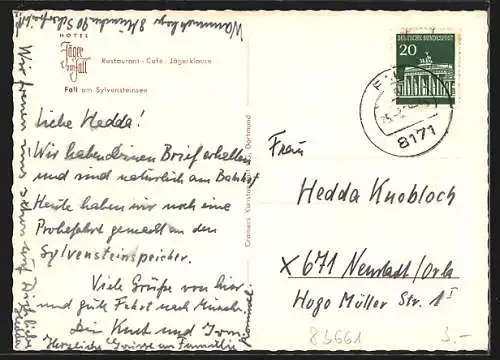 HOTEL
Jäger
vom Fall
Restaurant - Café - Jägerklause
Fall am Sylvensteinsee
Liebe Hedda!
Wir haben deinen Brief erhalten
und sind natürlich am Bahnhof
Heute haben wir noch eine
Probefahrt gemacht an den
Sylvensteinspeicher.
Viele Grüße von hier
und gute Fahrt nach München
Dein Knut und
Herzliche Grüsse an Familie
Wir freuen uns schon auf Dich
8 München 90
Cramers Dortmund
DEUTSCHE BUNDESPOST
20
8171
Frau
Hedda Knobloch
X 671 Neustadt/Orla
Hugo Müller Str. 1 I
83661
3.-